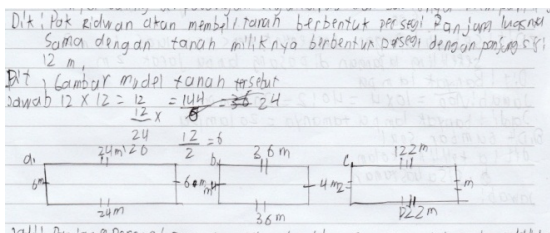 Dik : Pak Ridwan akan membeli tanah berbentuk persegi Panjang luasnya
Sama dengan tanah miliknya berbentuk persegi dengan panjang sisi
12 m.
Dit : Gambar model tanah tersebut
Jawab 12 x 12 = 12 = 144 = 24
12 x 6
24 12 = 6
120 2
a. 24m b. 36m c. 122m
6m 6m 4m 2 m
24m 36m 122m